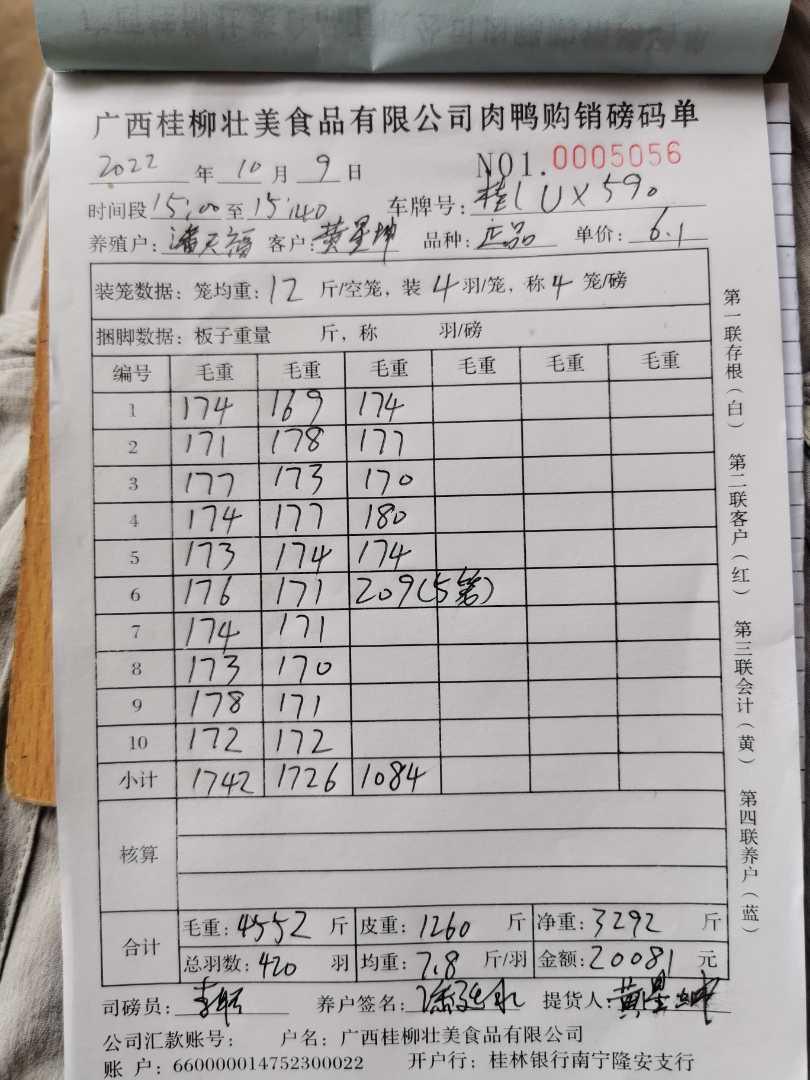 广西桂柳壮美食品有限公司肉鸭购销磅码单
2022 年 10 月 9 日 NO1. 0005056
时间段 15:00 至 15:40 车牌号: 桂L UX590
养殖户: 潘天福 客户: 黄星坤 品种: 正品 单价: 6.1
装笼数据: 笼均重: 12 斤/空笼, 装 4 羽/笼, 称 4 笼/磅
捆脚数据: 板子重量 斤, 称 羽/磅
编号 毛重 毛重 毛重 毛重 毛重 毛重
1 174 169 174
2 171 178 177
3 177 173 170
4 174 177 180
5 173 174 174
6 176 171 209(5笼)
7 174 171
8 173 170
9 178 171
10 172 172
小计 1742 1726 1084
核算
合计
毛重: 4552 斤 皮重: 1260 斤 净重: 3292 斤
总羽数: 420 羽 均重: 7.8 斤/羽 金额: 20081 元
司磅员: 养户签名: 提货人: 黄星坤
公司汇款账号: 户名: 广西桂柳壮美食品有限公司
账 户: 660000014752300022 开户行: 桂林银行南宁隆安支行
第一联存根(白) 第二联客户(红) 第三联会计(黄) 第四联养户(蓝)